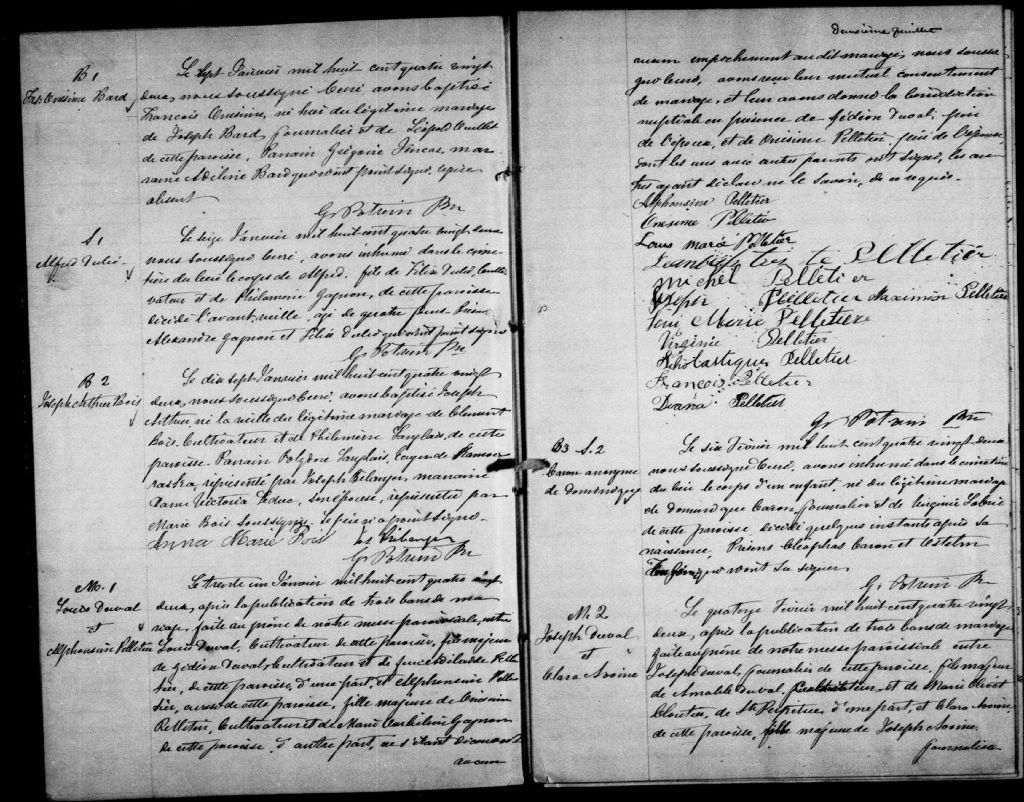 B 1
Frs. Onésime Bard
Le sept Janvier mil huit cent quatre vingt
deux, nous soussigné Curé avons baptisé
François Onésime, né hier du légitime mariage
de Joseph Bard, journalier et de Léopold Ouellet
de cette paroisse. Parrain Grégoire mar-
raine Adeline Bard qui n'ont point signé, le père
absent
G. Potvin Ptre
S. 1
Alfred Dubé
Le seize Janvier mil huit cent quatre vingt deux
nous soussigné Curé, avons inhumé dans le cime-
tière du lieu le corps de Alfred, fils de Félix Dubé, Culti-
vateur et de Philomène Gagnon, de cette paroisse
décédé l'avant veille, agé de quatre jours.
Alexandre Gagnon et Félix Dubé qui n'ont point signé
G. Potvin Ptre
B 2
Joseph Arthur Bois
Le dix sept Janvier mil huit cent quatre vingt
deux, nous soussigné Curé, avons baptisé Joseph
Arthur, né la veille du légitime mariage de Clément
Bois, Cultivateur et de Philomène Langlais, de cette
paroisse. Parrain Polydore Langlais, de Kamou-
raska, représenté par Joseph Bélanger, marraine
Dame Victoria Leduc, son épouse, représentée par
Marie Bois soussignée. Le père n'a point signé.
Anna Marie Bois
G. Potvin Ptre
M. 1
Louis Duval
et
Alphonsine Pelletier
Le trente un Janvier mil huit cent quatre vingt
deux, après la publication de trois bans de ma-
riage, faite au prône de notre messe paroissiale, entre
Louis Duval, Cultivateur de cette paroisse, fils majeur
de Gédéon Duval, Cultivateur et de Pelle-
tier, de cette paroisse, d'une part, et Alphonsine Pelle-
tier, aussi de cette paroisse, fille majeure de Onésime
Pelletier, Cultivateur et de Marie Gagnon
de cette paroisse, d'autre part, ne s'étant découvert
aucun
Deuxième feuillet
aucun empêchement au dit mariage, nous soussi-
gné Curé, avons reçu leur mutuel consentement
de mariage, et leur avons donné la bénédiction
nuptiale en présence de Gédéon Duval, père
de l'époux, et de Onésime Pelletier, père de l'épouse,
dont les uns avec autres parents ont signé, les au-
tres ayant déclaré ne le savoir, de ce requis.
Alphonsine Pelletier
Onesime Pelletier
Louis marie Pelletier
Jean Baptiste Pelletier
michel Pelletier
Joseph Pelletier Maximin Pelletier
Marie Pelletiere
Virginie Pelletier
Scholastique Pelletier
François Pelletier
Diana Pelletier
G. Potvin Ptre
B3 S. 2
Caron anonyme
de Dominique
Le six Février mil huit cent quatre vingt deux
nous soussigné Curé, avons inhumé dans le cimetière
du lieu le corps d'un enfant, né du légitime mariage
de Dominique Caron, journalier et de Virginie
de cette paroisse, décédé quelques instants après sa
naissance. Présens Cléophas Caron et
qui n'ont su signer.
G. Potvin Ptre
M. 2
Joseph Duval
et
Clara Avoine
Le quatorze Février mil huit cent quatre vingt
deux, après la publication de trois bans de mariage
faite au prône de notre messe paroissiale entre
Joseph Duval, journalier de cette paroisse, fils majeur
de Amable Duval, Cultivateur et de Marie
Cloutier, de Ste Perpétue, d'une part, et Clara Avoine
de cette paroisse, fille majeure de Joseph Avoine,
journalier